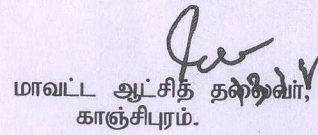 மாவட்ட ஆட்சித் தலைவர்,
காஞ்சிபுரம்.